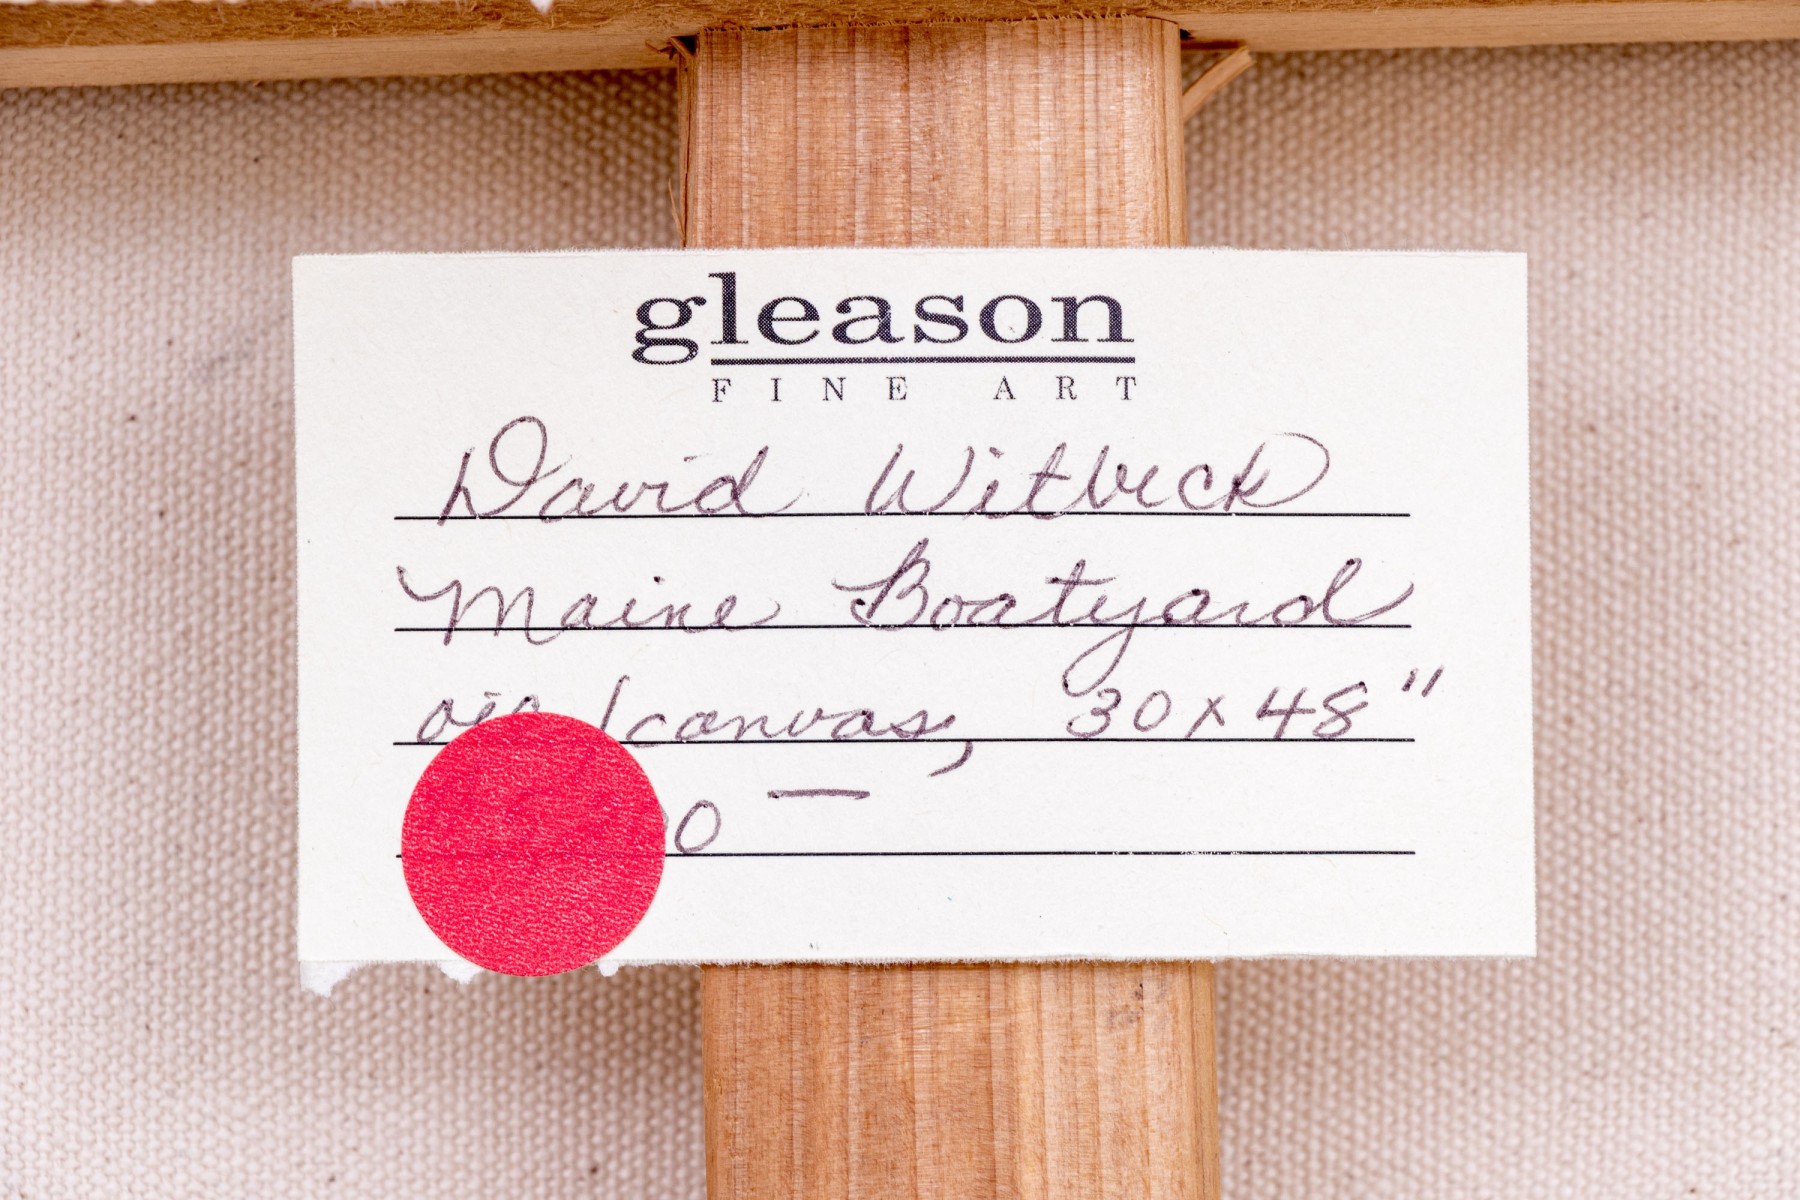 gleason
FINE ART
David Witbeck
Maine Boatyard
oil/canvas, 30 x 48"